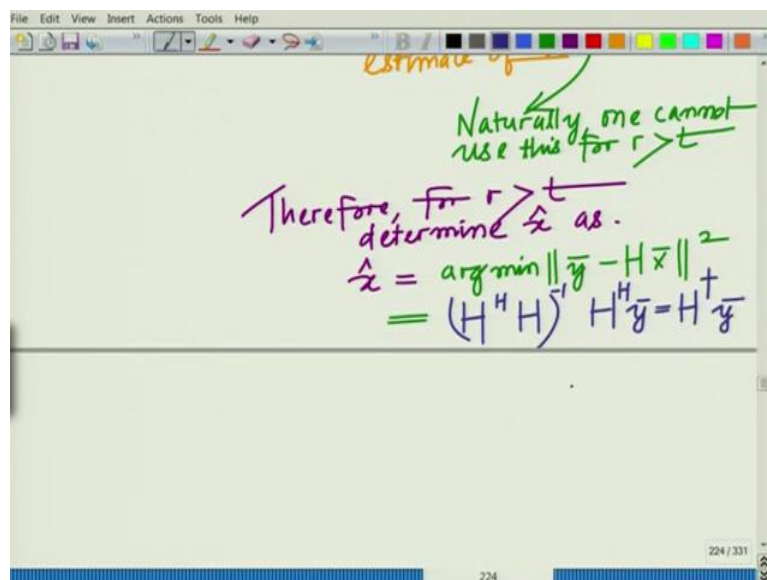 File Edit View Insert Actions Tools Help
B I
estimate of
Naturally, one cannot
use this for r > t
Therefore, for r > t
determine x̂ as.
x̂ = arg min ‖ȳ - Hx̄‖²
= (HᴴH)⁻¹ Hᴴȳ = H†ȳ
224 / 331
224